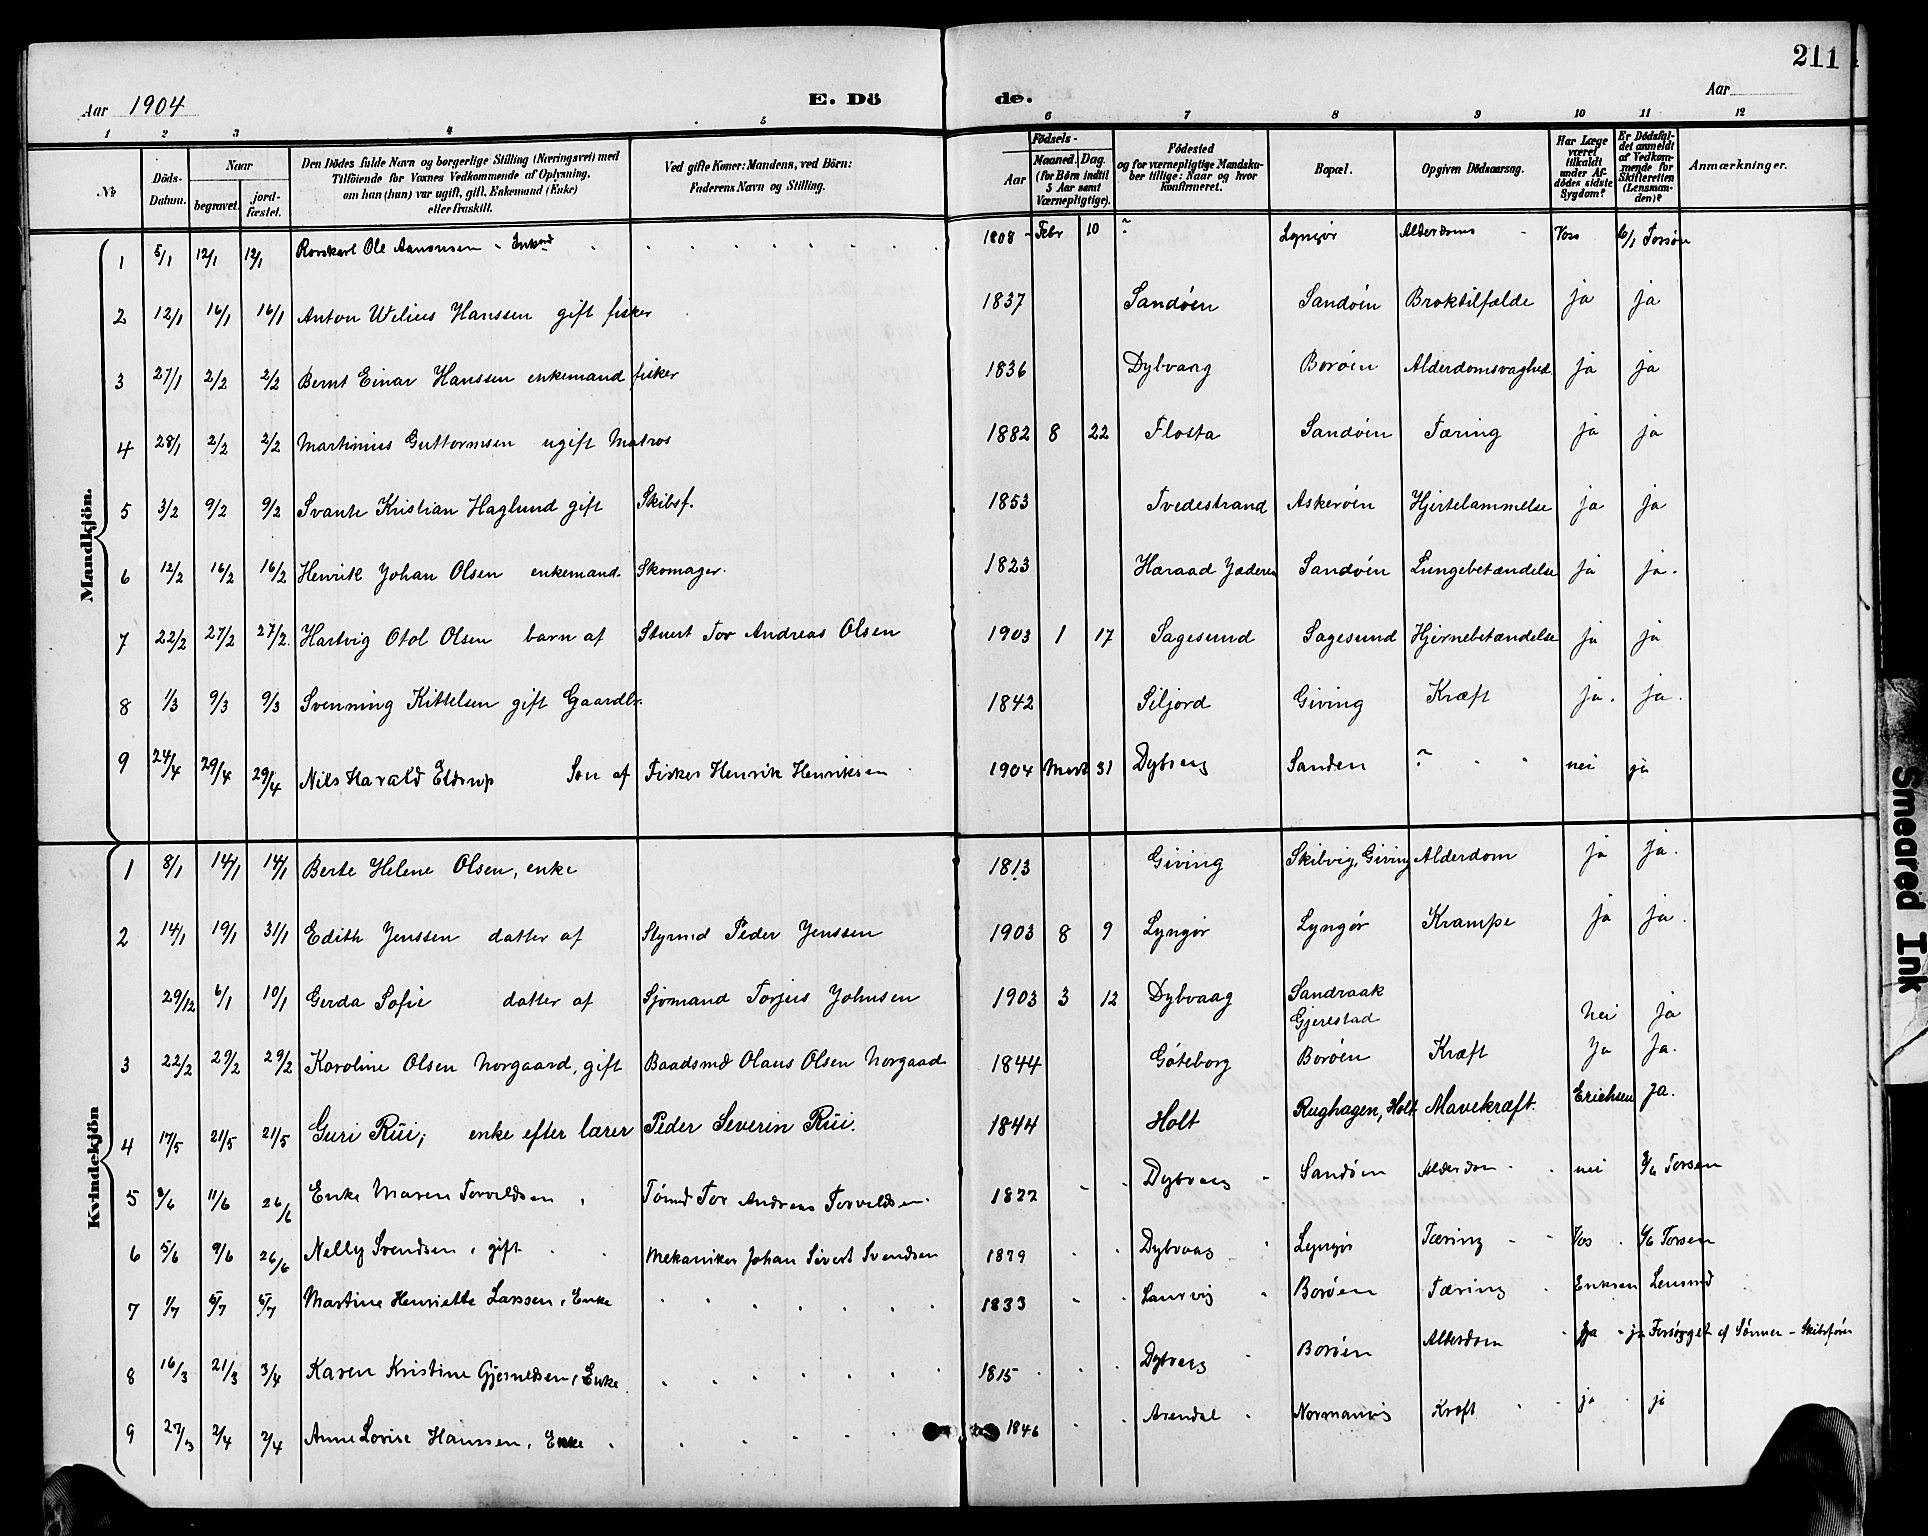 211
Aar 1904 E. Dö de. Aar
1 2 3 4 5 6 7 8 9 10 11 12
№ Döds-Datum. Naar begravet. jord-fæstet. Den Dödes fulde Navn og borgerlige Stilling (Næringsvei) med Tilföiende for Voxnes Vedkommende af Oplysning, om han (hun) var ugift, gift, Enkemand (Enke) eller fraskilt. Ved gifte Koner: Mandens, ved Börn: Faderens Navn og Stilling. Födsels- Aar Maaned. Dag. (for Börn indtil 5 Aar samt Værnepligtige). Födested og for værnepligtige Mandskaber tillige: Naar og hvor konfirmeret. Bopæl. Opgiven Dödsaarsag. Har Læge været tilkaldt under Afdödes sidste Sygdom? Er Dödsfaldet anmeldt af Vedkommende for Skifteretten (Lensmanden)? Anmærkninger.
Mandkjön.
1 5/1 12/1 12/1 Ole Aanonsen - Enkemd 1808 - Febr 10 ~ Lyngør Alderdoms Voss 6/1 Torsøn
2 12/1 16/1 16/1 Anton Wilius Hanssen gift fisker 1837 Sandøen Sandøen Broktilfælde ja ja
3 27/1 2/2 2/2 Bernt Einar Hanssen enkemand fisker 1836 Dybvaag Borøen Alderdomsvaghed ja ja
4 28/1 2/2 2/2 Martinius Guttormsen ugift Matros 1882 8 22 Flosta Sandøen Tæring ja ja
5 3/2 9/2 9/2 Svante Kristian Haglund gift Skibsf. 1853 Tvedestrand Askerøen Hjertelammelse ja ja
6 12/2 16/2 16/2 Henrik Johan Olsen enkemand. Skomager. 1823 Haraad Jæderen Sandøen Lungebetændelse ja ja.
7 22/2 27/2 27/2. Hartvig Otol Olsen barn af Stuert Tor Andreas Olsen 1903 1 17 Sagesund Sagesund Hjernebetændelse ja ja
8 1/3 9/3 9/3 Svenning Kittelsen gift Gaardbr. 1842 Siljord Giving Kræft ja. ja.
9 24/4 29/4 29/4 Nils Harald Eldrup Søn af Fisker Henrik Henriksen 1904 Marts 31 Dybvaag Sanden ~ nei ja
Kvindekjön
1 8/1 14/1 14/1 Berte Helene Olsen, enke 1813 Giving Skibvig, Giving Alderdom ja ja.
2 14/1 19/1 31/1 Edith Jenssen datter af Styrmd Peder Jenssen 1903 8 9 Lyngør Lyngør Krampe ja ja.
29/12 6/1 10/1 Gerda Sofie datter af Sjømand Torjus Johnsen 1903 3 12 Dybvaag Sandvaak Gjerestad nei ja
3 22/2 29/2 29/2 Karoline Olsen Norgaard, gift Baadsmd Olaus Olsen Norgaad 1844 Göteborg Borøen Kræft Ja Ja.
4 17/5 21/5 21/5 Guri Rüi, enke efter lærer Peder Severin Rüi. 1844 Holt Rughagen, Holt Mavekræft. Erichsen Ja.
5 2/6 11/6 26/6 Enke Maren Torvildsen Tømd Tor Andreas Torvildsen. 1822 Dybvaag Sandøen Alderdom nei 3/6 Torsen
6 5/6 9/6 26/6 Nelly Svendsen, gift Mekaniker Johan Sivert Svendsen 1879 Dybvaag Lyngør Tæring Vos 6/6 Torsen
7 1/7 5/7 5/7 Martine Henriette Larssen, Enke 1833 Laurvig Borøen Tæring Eriksen Lensmd
8 16/3 21/3 3/4 Karen Kristine Gjeruldsen, Enke 1815 Dybvaag Borøen Alderdom ja - ja Forsørget af Sønner - Skibsfører
9 27/3 2/4 2/4 Anne Lovise Hanssen, Enke 1846 Arendal Normanvig Kræft ja ja
Smeared Ink